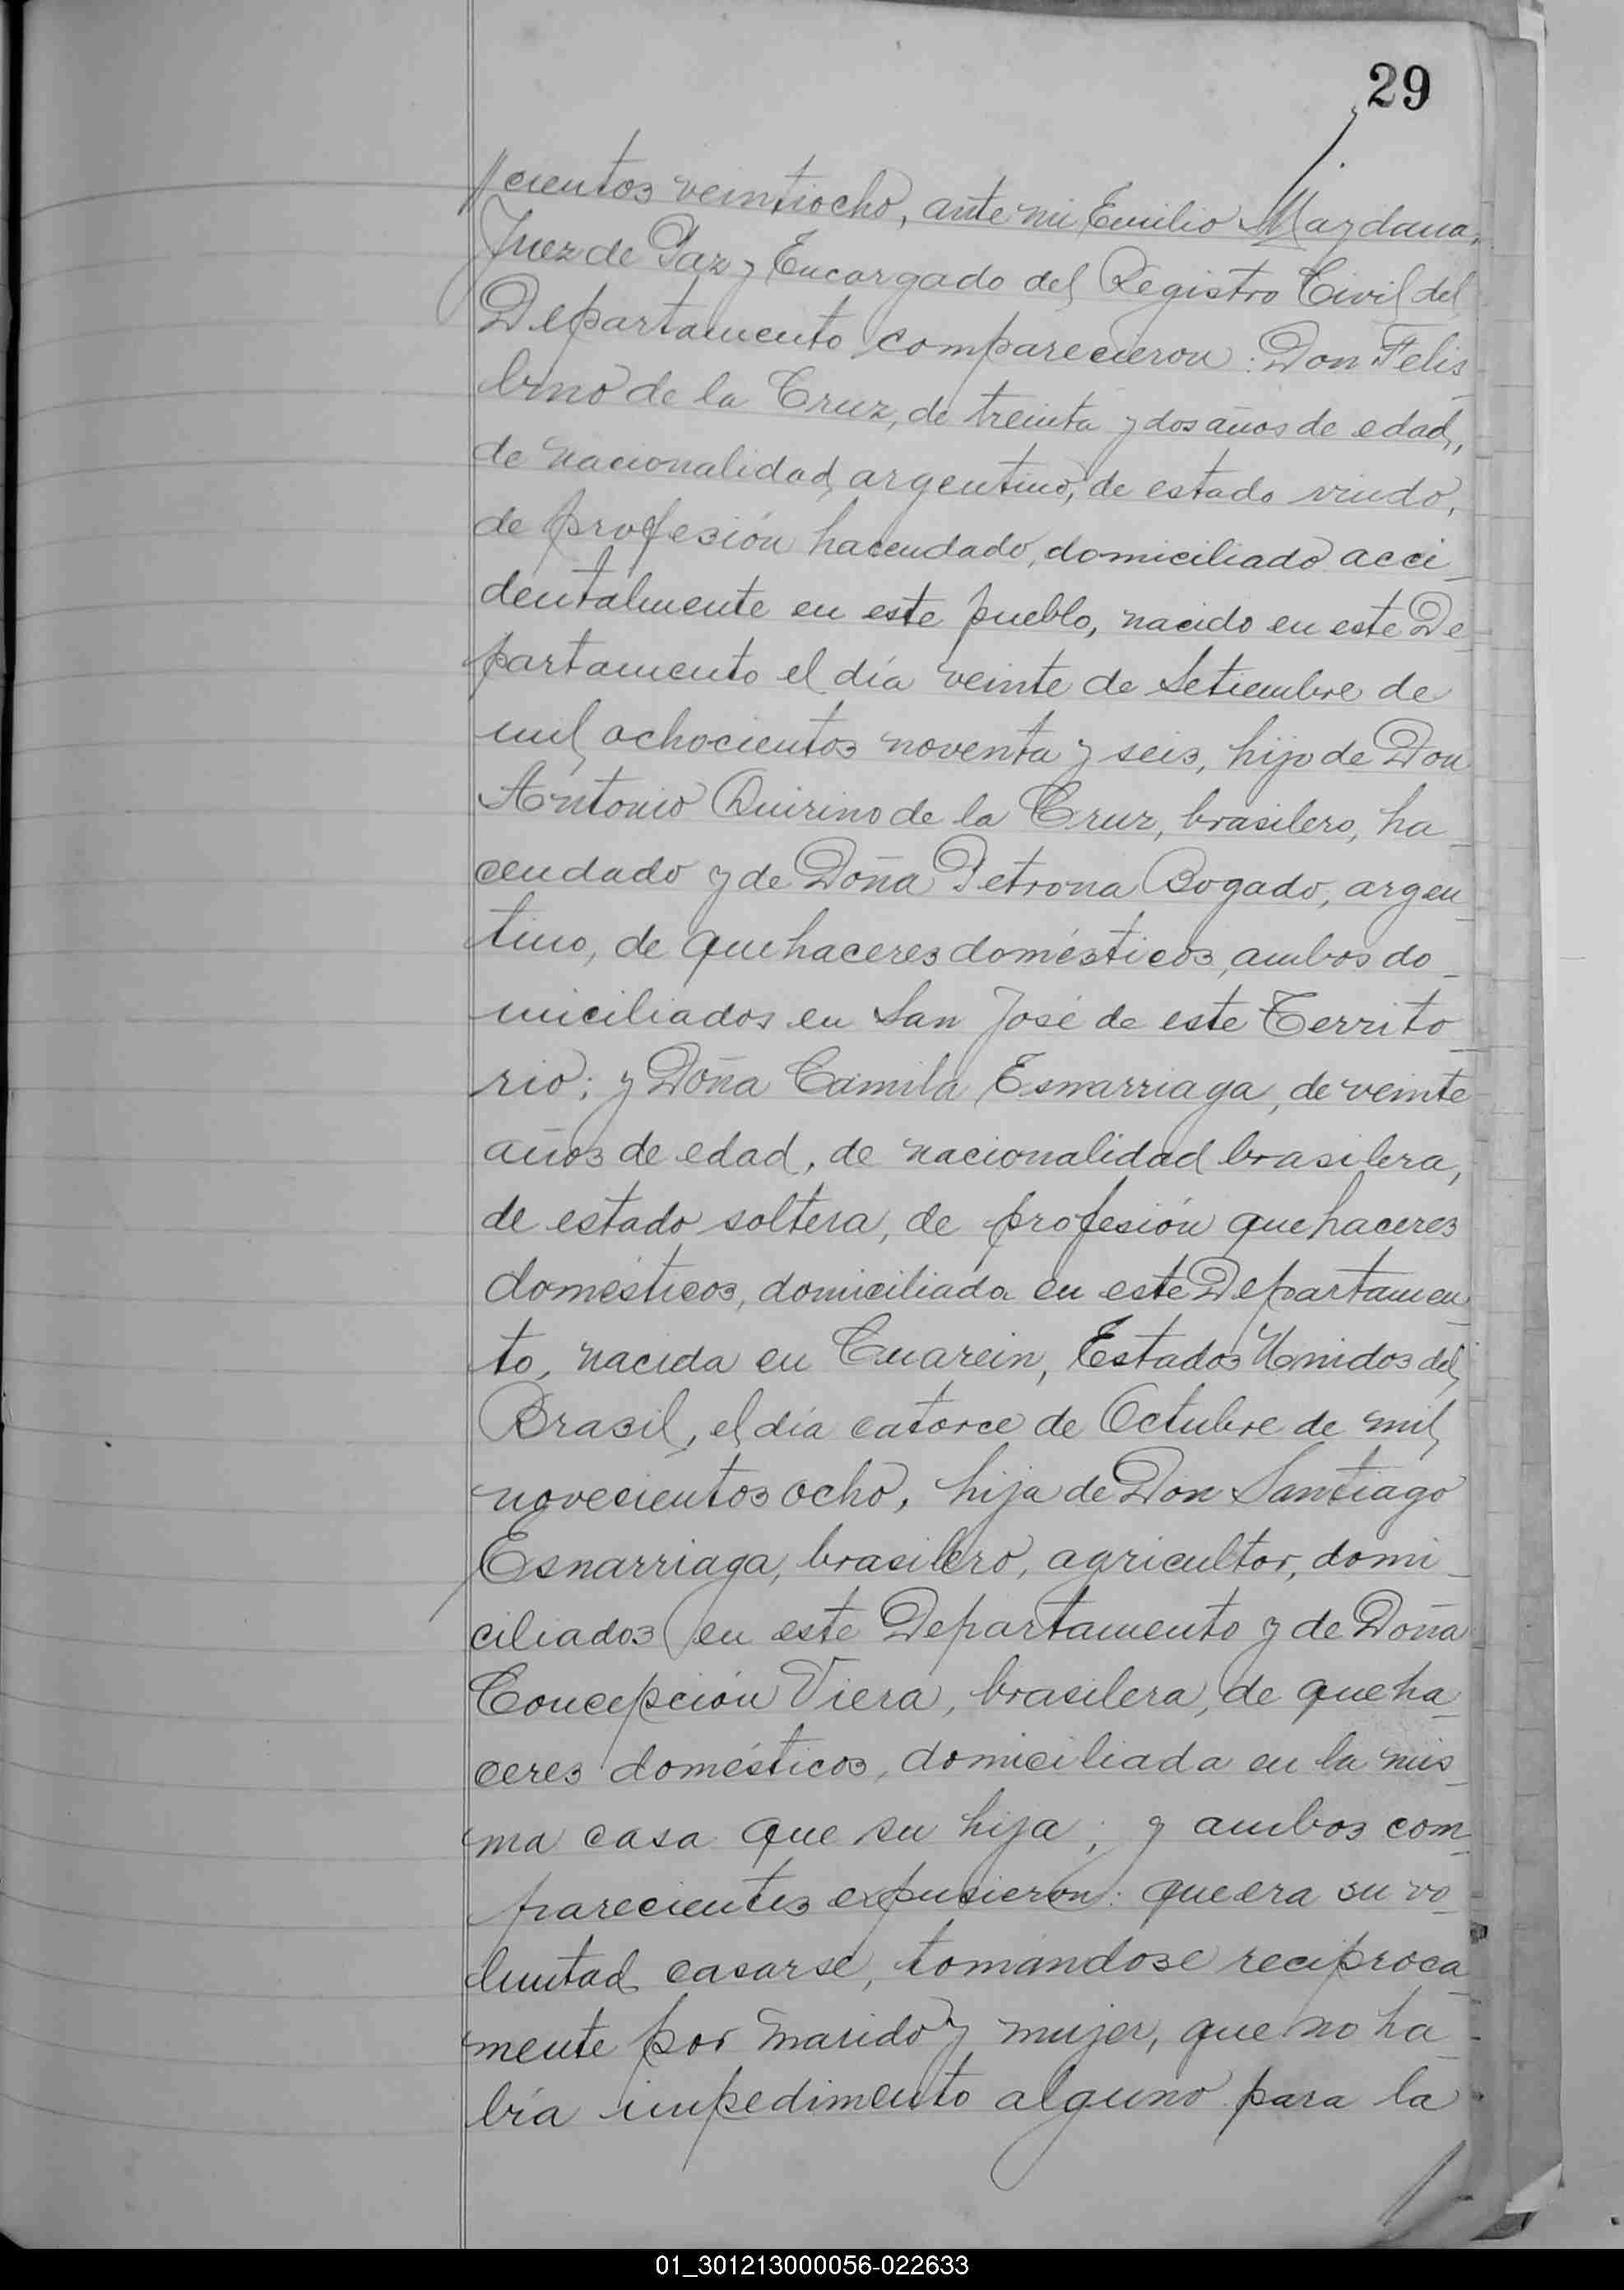 29
//cientos veintiocho, ante mi Emilio Maydana,
Juez de Paz y Encargado del Registro Civil del
Departamento comparecieron: Don Felis
brno de la Cruz, de treinta y dos años de edad,
de nacionalidad argentino, de estado viudo,
de profesión hacendado, domiciliado acci_
dentalmente en este pueblo, nacido en este De_
partamento el día veinte de Setiembre de
mil ochocientos noventa y seis, hijo de Don
Antonio Quirino de la Cruz, brasilero, ha_
cendado y de Doña Petrona Bogado, argen_
tino, de quehaceres domésticos, ambos do_
miciliados en San José de este Territo_
rio; y Doña Camila Esnarriaga, de veinte
años de edad, de nacionalidad brasilera,
de estado soltera, de profesión quehaceres
domésticos, domiciliada en este Departamen_
to, nacida en Cuarein, Estados Unidos del
Brasil, el día catorce de Octubre de mil
novecientos ocho, hija de Don Santiago
Esnarriaga, brasilero, agricultor, domi_
ciliados en este Departamento y de Doña
Concepción Viera, brasilera, de queha_
ceres domésticos, domiciliada en la mis_
ma casa que su hija; y ambos com_
parecientes expusieron: que era su vo_
luntad casarse, tomándose reciproca_
mente por marido y mujer, que no ha_
bía impedimento alguno para la
01_301213000056-022633